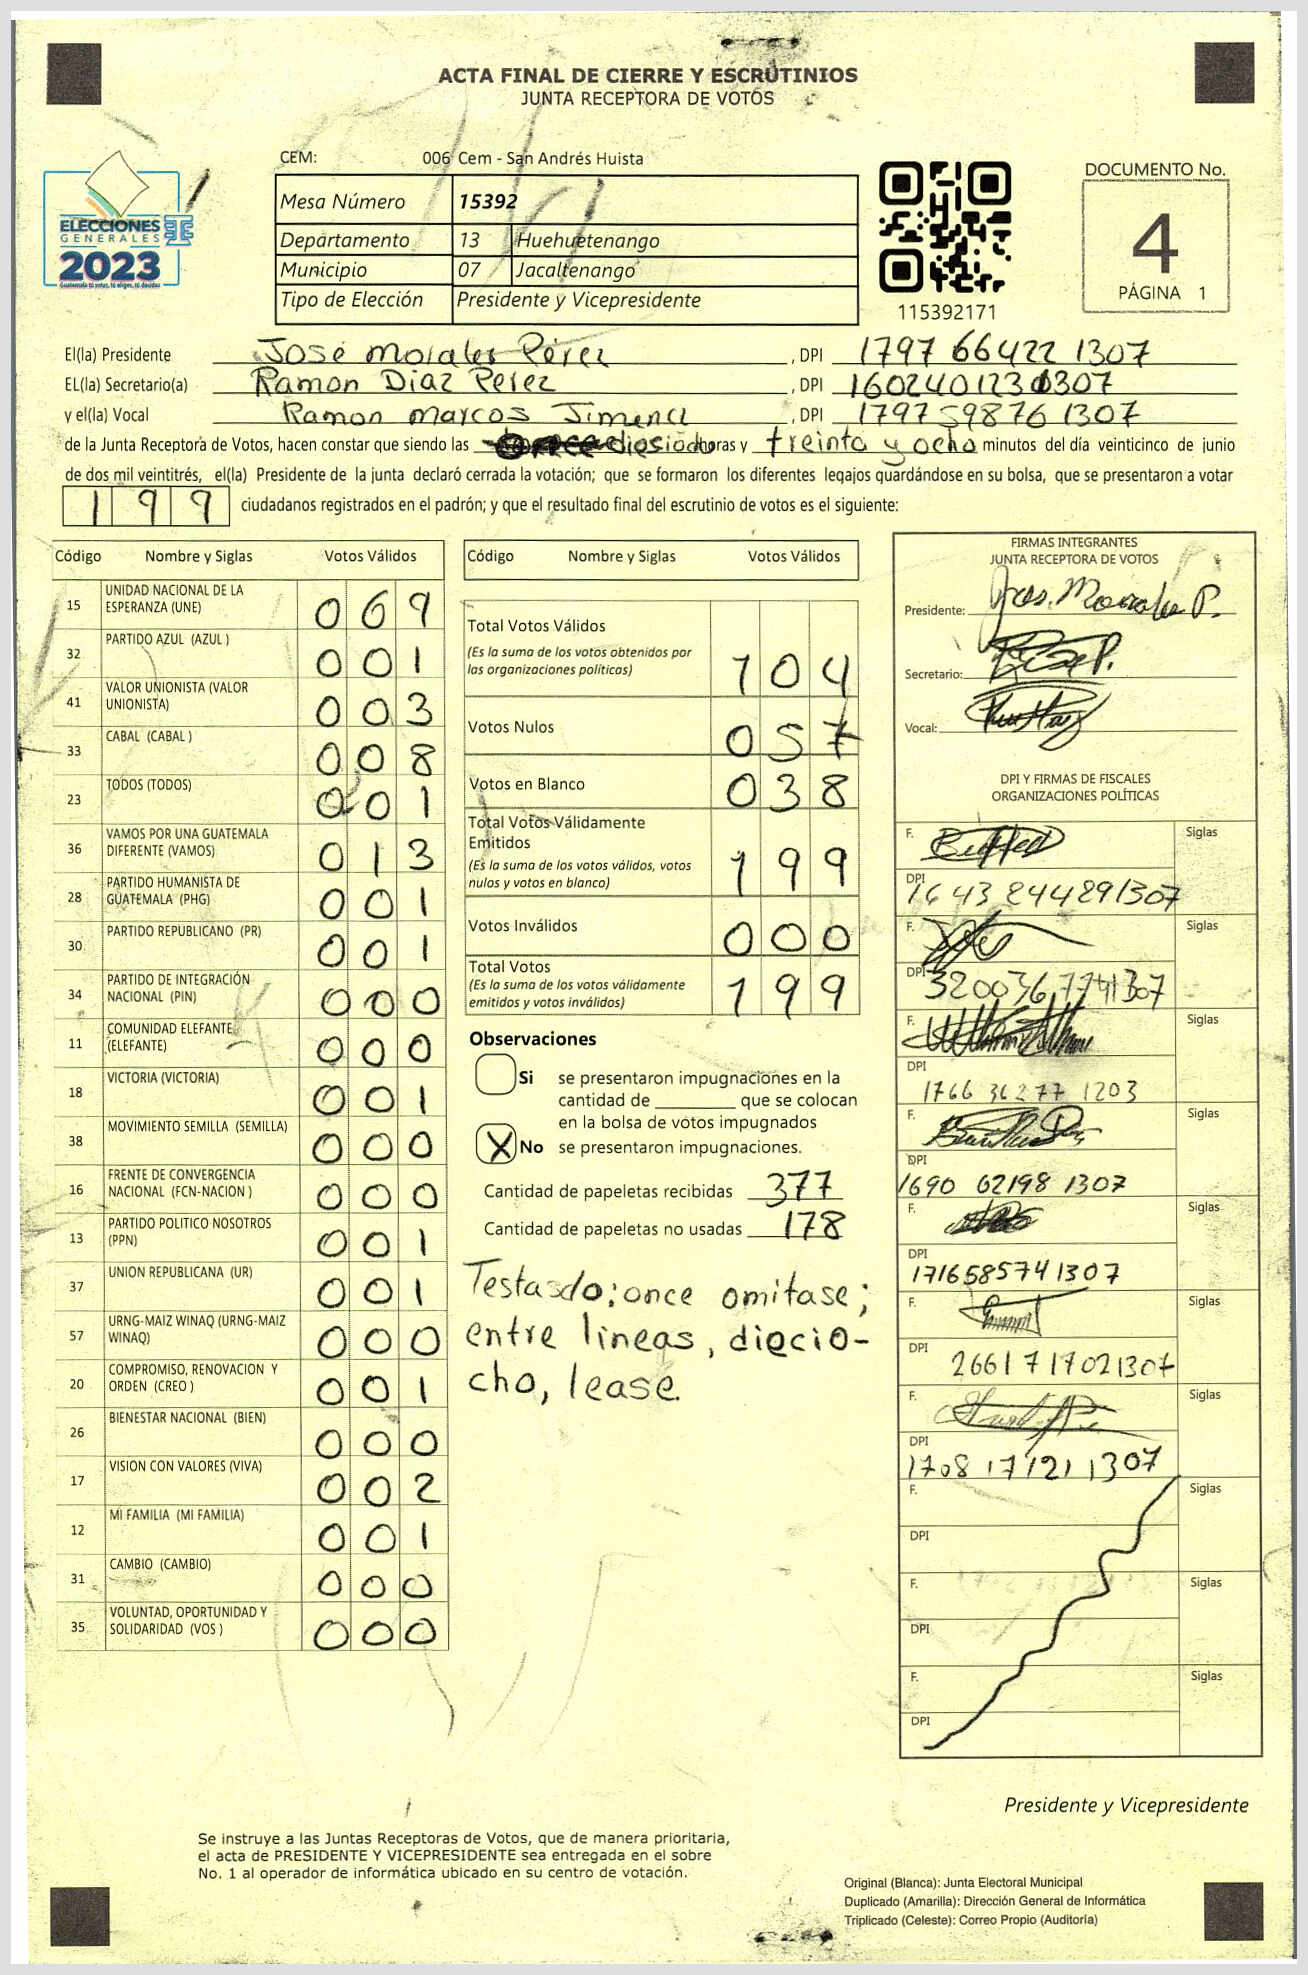 ACTA FINAL DE CIERRE Y ESCRUTINIOS
JUNTA RECEPTORA DE VOTOS
CEM: 006 Cem - San Andrés Huista
Mesa Número 15392
Departamento 13 Huehuetenango
Municipio 07 Jacaltenango
Tipo de Elección Presidente y Vicepresidente
ELECCIONES
GENERALES
2023
Guatemala tú votas, tú eliges, tú decides
115392171
DOCUMENTO No.
4
PÁGINA 1
El(la) Presidente José Morales Pérez, DPI 1797 66422 1307
EL(la) Secretario(a) Ramon Diaz Perez, DPI 1602401230307
y el(la) Vocal Ramon Marcos Jimenez, DPI 1797 59876 1307
de la Junta Receptora de Votos, hacen constar que siendo las horas y treinta y ocho minutos del día veinticinco de junio
de dos mil veintitrés, el(la) Presidente de la junta declaró cerrada la votación; que se formaron los diferentes legajos guardándose en su bolsa, que se presentaron a votar
199 ciudadanos registrados en el padrón; y que el resultado final del escrutinio de votos es el siguiente:
Código Nombre y Siglas Votos Válidos
15 UNIDAD NACIONAL DE LA ESPERANZA (UNE) 069
32 PARTIDO AZUL (AZUL ) 001
41 VALOR UNIONISTA (VALOR UNIONISTA) 003
33 CABAL (CABAL ) 008
23 TODOS (TODOS) 001
36 VAMOS POR UNA GUATEMALA DIFERENTE (VAMOS) 013
28 PARTIDO HUMANISTA DE GUATEMALA (PHG) 001
30 PARTIDO REPUBLICANO (PR) 001
34 PARTIDO DE INTEGRACIÓN NACIONAL (PIN) 000
11 COMUNIDAD ELEFANTE (ELEFANTE) 000
18 VICTORIA (VICTORIA) 001
38 MOVIMIENTO SEMILLA (SEMILLA) 000
16 FRENTE DE CONVERGENCIA NACIONAL (FCN-NACION ) 000
13 PARTIDO POLITICO NOSOTROS (PPN) 001
37 UNION REPUBLICANA (UR) 001
57 URNG-MAIZ WINAQ (URNG-MAIZ WINAQ) 000
20 COMPROMISO, RENOVACION Y ORDEN (CREO ) 001
26 BIENESTAR NACIONAL (BIEN) 000
17 VISION CON VALORES (VIVA) 002
12 MI FAMILIA (MI FAMILIA) 001
31 CAMBIO (CAMBIO) 000
35 VOLUNTAD, OPORTUNIDAD Y SOLIDARIDAD (VOS ) 000
Código Nombre y Siglas Votos Válidos
Total Votos Válidos 104
(Es la suma de los votos obtenidos por
las organizaciones políticas)
Votos Nulos 057
Votos en Blanco 038
Total Votos Válidamente
Emitidos 199
(Es la suma de los votos válidos, votos
nulos y votos en blanco)
Votos Inválidos 000
Total Votos 199
(Es la suma de los votos válidamente
emitidos y votos inválidos)
Observaciones
Si se presentaron impugnaciones en la
cantidad de que se colocan
en la bolsa de votos impugnados
X No se presentaron impugnaciones.
Cantidad de papeletas recibidas 377
Cantidad de papeletas no usadas 178
Testasdo: once omitase;
entre lineas, diecio-
cho, lease.
FIRMAS INTEGRANTES
JUNTA RECEPTORA DE VOTOS
Presidente: Morales P.
Secretario:
Vocal:
DPI Y FIRMAS DE FISCALES
ORGANIZACIONES POLÍTICAS
F. Siglas
DPI 1643 244291307
F. Siglas
DPI 320036 7741307
F. Siglas
DPI 1766 36277 1203
F. Siglas
DPI 1690 62198 1307
F. Siglas
DPI 1716585741307
F. Siglas
DPI 2661717021307
F. Siglas
DPI 1708 17121 1307
F. Siglas
DPI
F. Siglas
DPI
F. Siglas
DPI
Presidente y Vicepresidente
Se instruye a las Juntas Receptoras de Votos, que de manera prioritaria,
el acta de PRESIDENTE Y VICEPRESIDENTE sea entregada en el sobre
No. 1 al operador de informática ubicado en su centro de votación.
Original (Blanca): Junta Electoral Municipal
Duplicado (Amarilla): Dirección General de Informática
Triplicado (Celeste): Correo Propio (Auditoría)